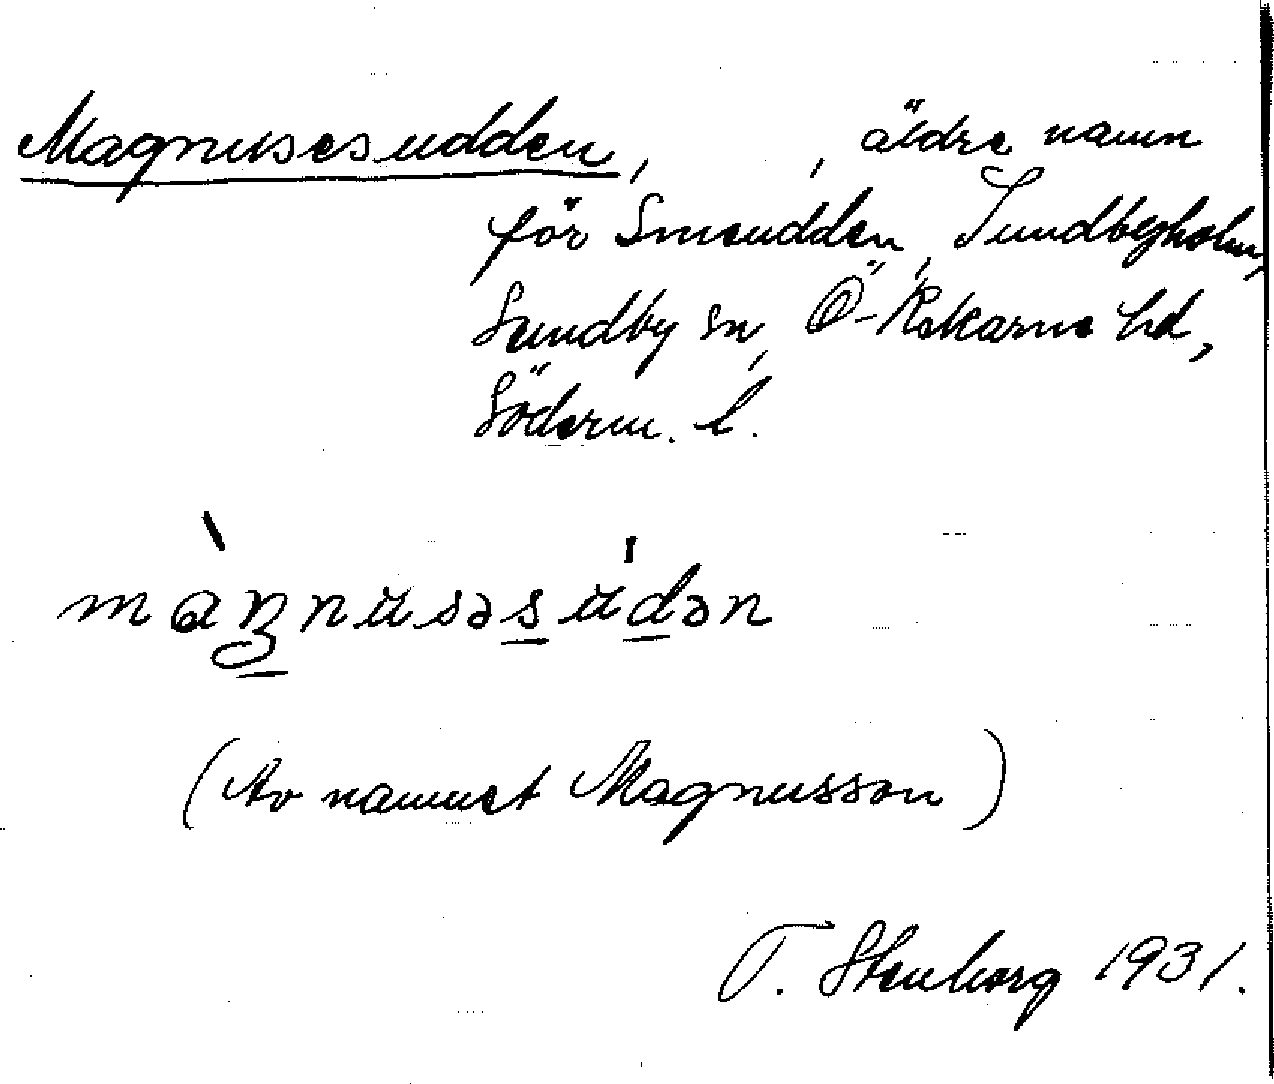 Magnusesudden, , äldre namn
för Smeudden, Sundbyholm,
Sundby sn, Ö-Rekarne hd,
Söderm. l.
màŋnŭsəsŭ́dən
(Av namnet Magnusson)
T. Stenborg 1931.